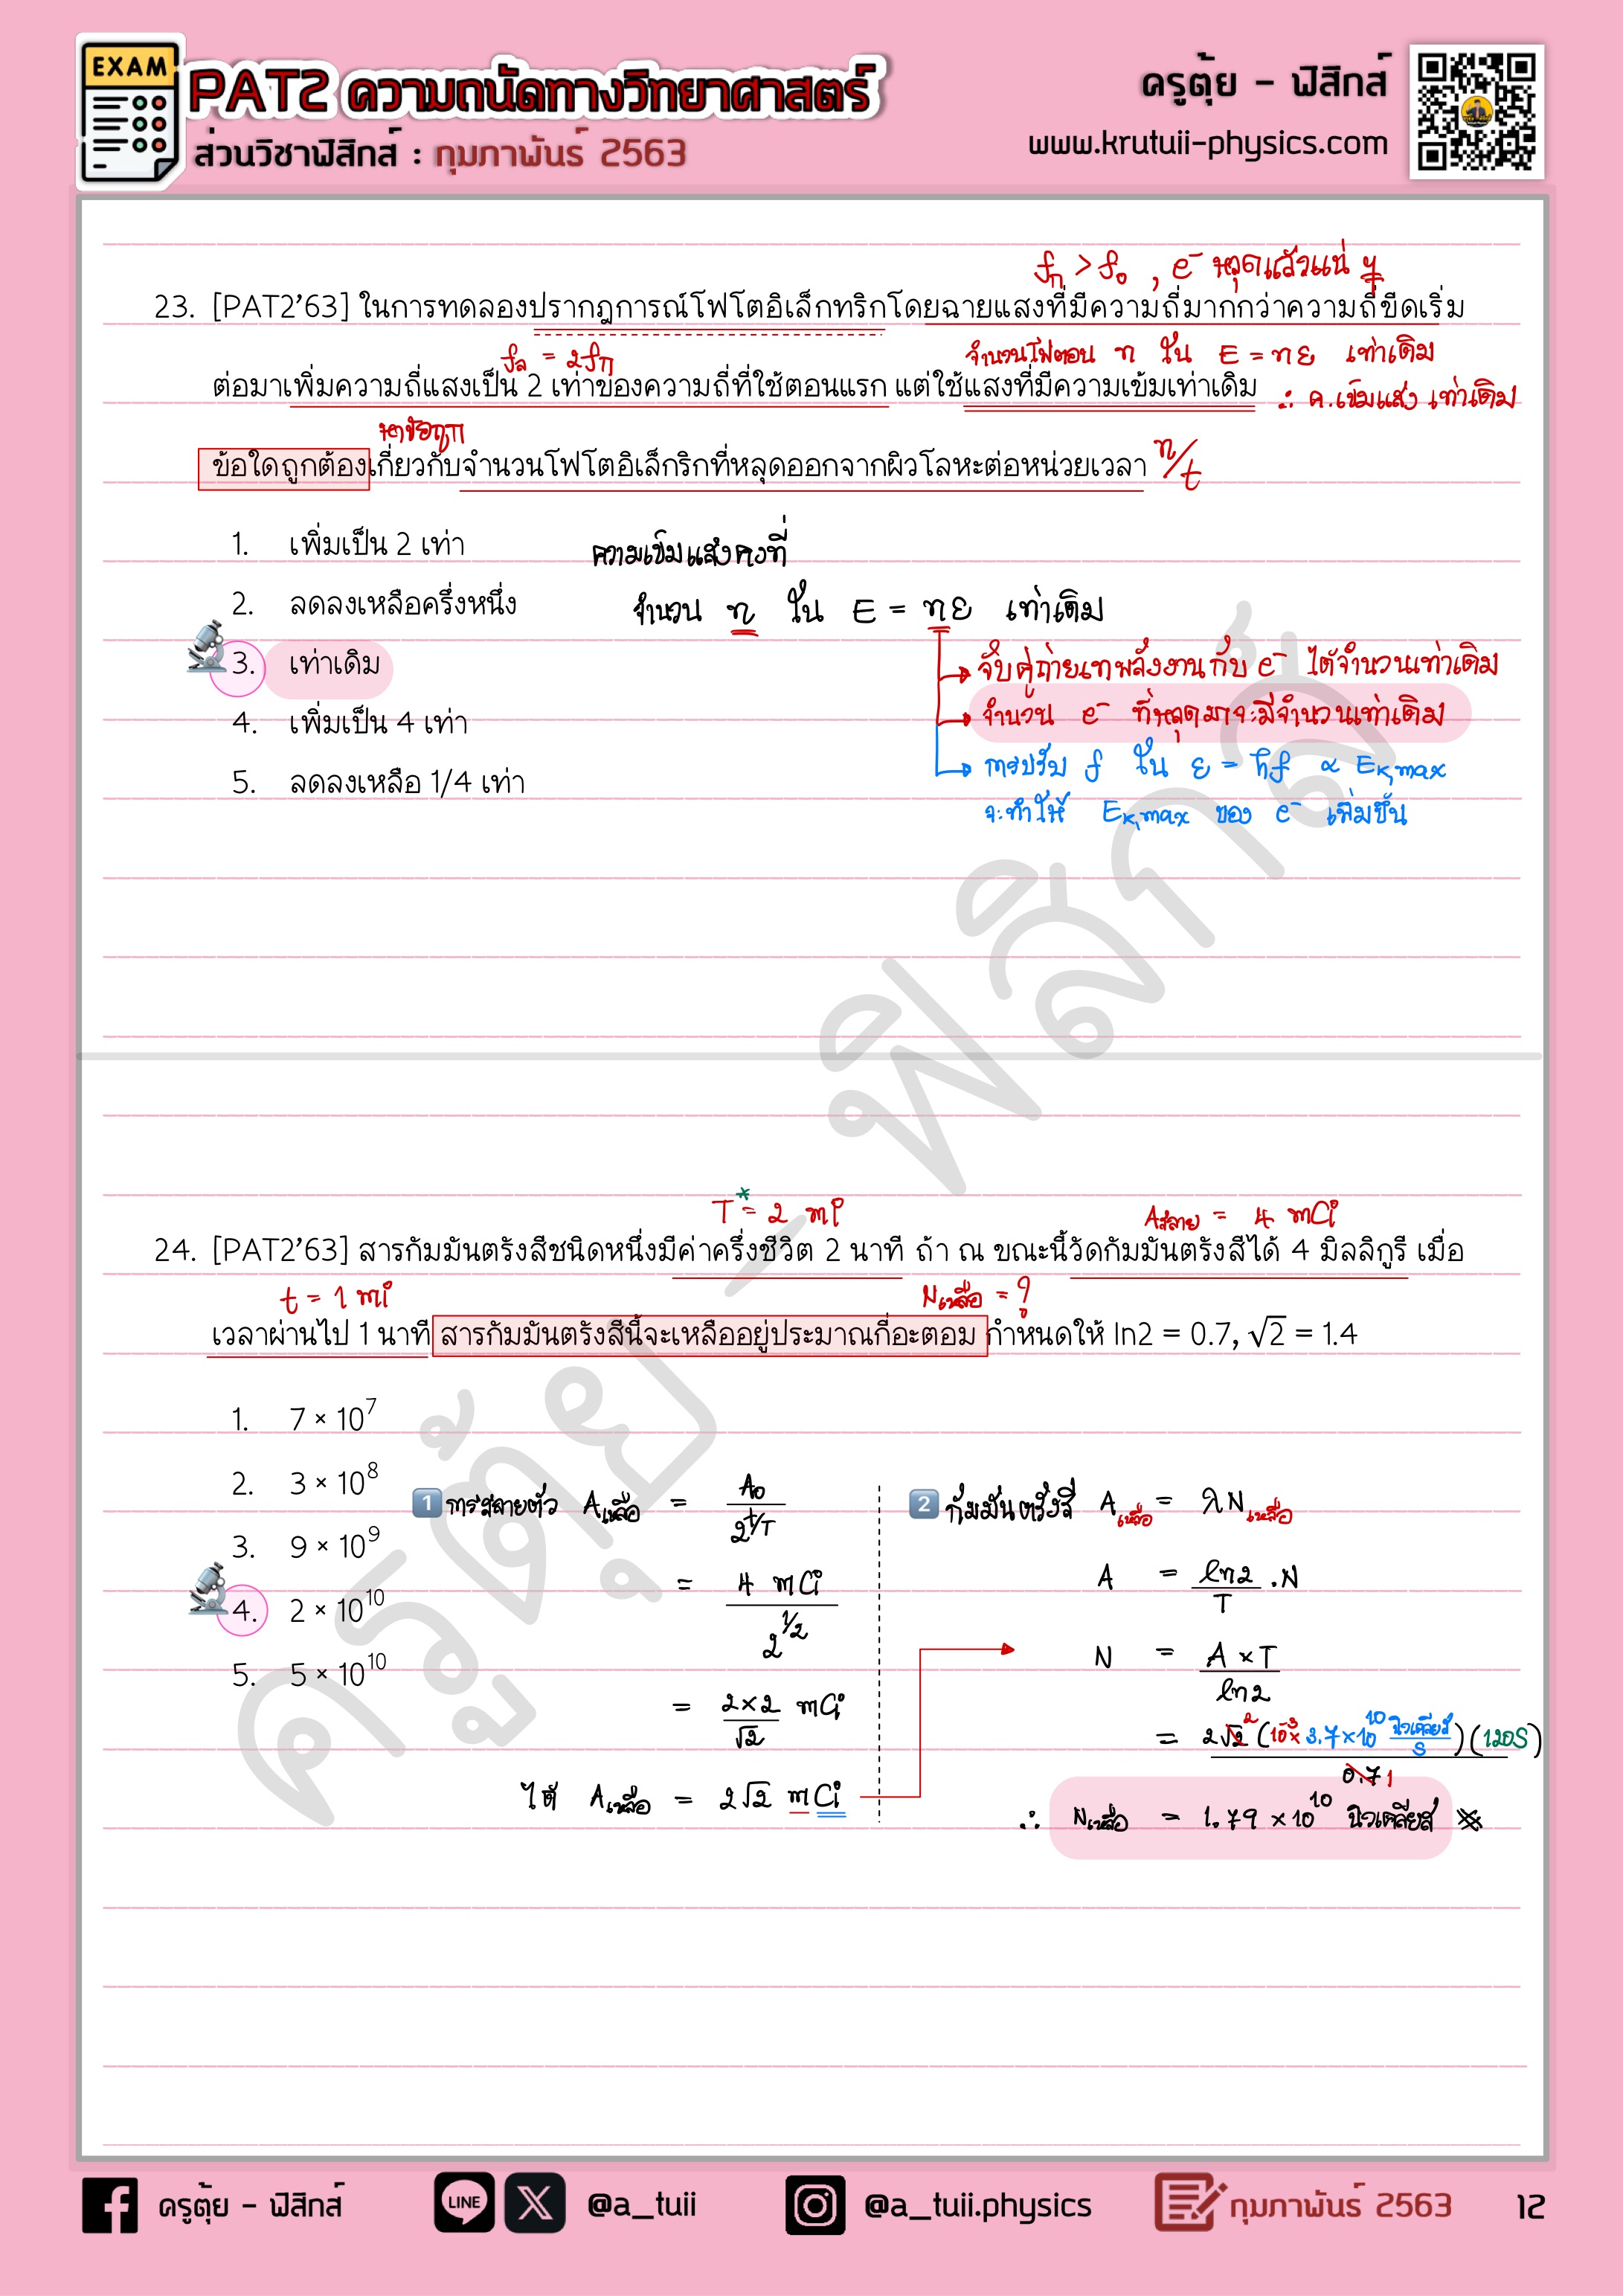 EXAM
PAT2 ความถนัดทางวิทยาศาสตร์
ส่วนวิชาฟิสิกส์ : กุมภาพันธ์ 2563
ครูตุ้ย - ฟิสิกส์
www.krutuii-physics.com
fก > f₀ , e⁻ หลุดแล้วแน่ ๆ
23. [PAT2'63] ในการทดลองปรากฏการณ์โฟโตอิเล็กทริกโดยฉายแสงที่มีความถี่มากกว่าความถี่ขีดเริ่ม
fล = 2fก
จำนวนโฟตอน n ใน E = nε เท่าเดิม
ต่อมาเพิ่มความถี่แสงเป็น 2 เท่าของความถี่ที่ใช้ตอนแรก แต่ใช้แสงที่มีความเข้มเท่าเดิม
∴ ค.เข้มแสง เท่าเดิม
หาข้อถูก
ข้อใดถูกต้องเกี่ยวกับจำนวนโฟโตอิเล็กริกที่หลุดออกจากผิวโลหะต่อหน่วยเวลา n/t
1. เพิ่มเป็น 2 เท่า
2. ลดลงเหลือครึ่งหนึ่ง
3. เท่าเดิม
4. เพิ่มเป็น 4 เท่า
5. ลดลงเหลือ 1/4 เท่า
ความเข้มแสงคงที่
จำนวน n ใน E = nε เท่าเดิม
จับคู่ถ่ายเทพลังงานกับ e⁻ ได้จำนวนเท่าเดิม
จำนวน e⁻ ที่หลุดมาจะมีจำนวนเท่าเดิม
การปรับ f ใน ε = hf ∝ Eₖ,max
จะทำให้ Eₖ,max ของ e⁻ เพิ่มขึ้น
T* = 2 mi
Aสลาย = 4 mCi
24. [PAT2'63] สารกัมมันตรังสีชนิดหนึ่งมีค่าครึ่งชีวิต 2 นาที ถ้า ณ ขณะนี้วัดกัมมันตรังสีได้ 4 มิลลิกูรี เมื่อ
t = 1 mi
Nเหลือ = ?
เวลาผ่านไป 1 นาที สารกัมมันตรังสีนี้จะเหลืออยู่ประมาณกี่อะตอม กำหนดให้ ln2 = 0.7, √2 = 1.4
1. 7 × 10⁷
2. 3 × 10⁸
3. 9 × 10⁹
4. 2 × 10¹⁰
5. 5 × 10¹⁰
1 การสลายตัว Aเหลือ = A₀ / 2^(t/T)
= 4 mCi / 2^(1/2)
= 2×2 / √2 mCi
ได้ Aเหลือ = 2√2 mCi
2 กัมมันตรังสี Aเหลือ = λNเหลือ
A = ln2 / T . N
N = A × T / ln2
= 2√2 ² (10⁻³ × 3.7×10¹⁰ นิวเคลียส์/s)(120s) / 0.7 1
∴ Nเหลือ = 1.79 × 10¹⁰ นิวเคลียส์
ครูตุ้ย - ฟิสิกส์
ครูตุ้ย - ฟิสิกส์
LINE
@a_tuii
@a_tuii.physics
กุมภาพันธ์ 2563
12